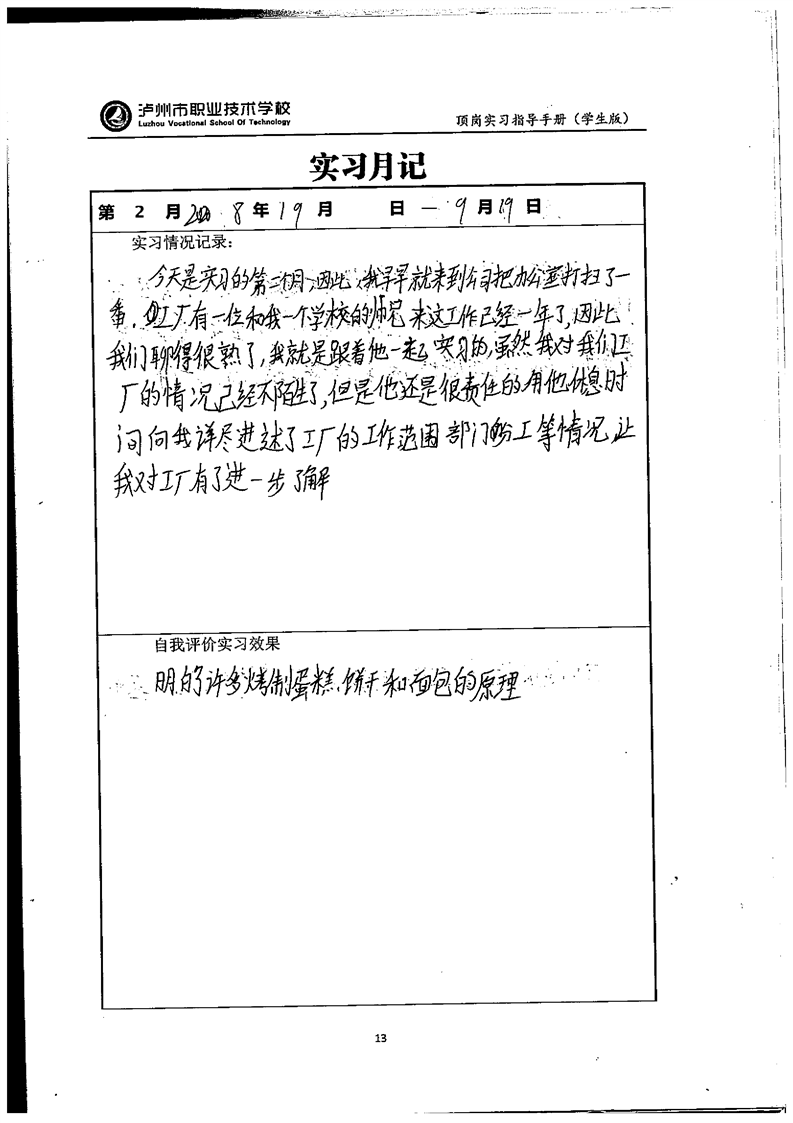 泸州市职业技术学校
Luzhou Vocational School Of Technology
顶岗实习指导手册（学生版）
实习月记
第 2 月 8 年 19 月 日 — 9 月 19 日
实习情况记录：
今天是实习的第二个月，因此，我早早就来到公司把办公室打扫了一
番。工厂有一位和我一个学校的师兄来这工作已经一年了，因此
我们聊得很熟了，我就是跟着他一起实习的，虽然我对我们工
厂的情况已经不陌生了，但是他还是很责任的用他休息时
间向我详尽进述了工厂的工作范围部门的分工等情况，让
我对工厂有了进一步了解
自我评价实习效果
明的了许多烤制蛋糕、饼干和面包的原理
13